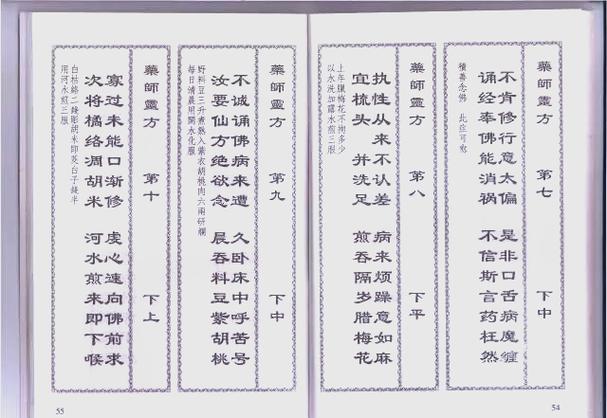 藥師靈方　第七　下中
不肯修行意太偏　是非口舌病魔缠
诵经奉佛能消祸　不信斯言药枉然
積善念佛　此症可愈
藥師靈方　第八　下平
执性从来不认差　病来烦躁意如麻
宜梳头　并洗足　煎吞隔岁腊梅花
上年臘梅花不拘多少
以水洗加露水煎三服
54
藥師靈方　第九　下中
不诚诵佛病来遭　久卧床中呼苦号
汝要仙方绝欲念　晨吞料豆紫胡桃
野料豆三升煮熟入紫衣胡桃肉六兩研爛
每日清晨用開水化服
藥師靈方　第十　下上
寡过未能口渐修　虔心速向佛前求
次将橘络凋胡米　河水煎来即下喉
白桔絡二錢彫胡米即茭白子錢半
用河水煎三服
55